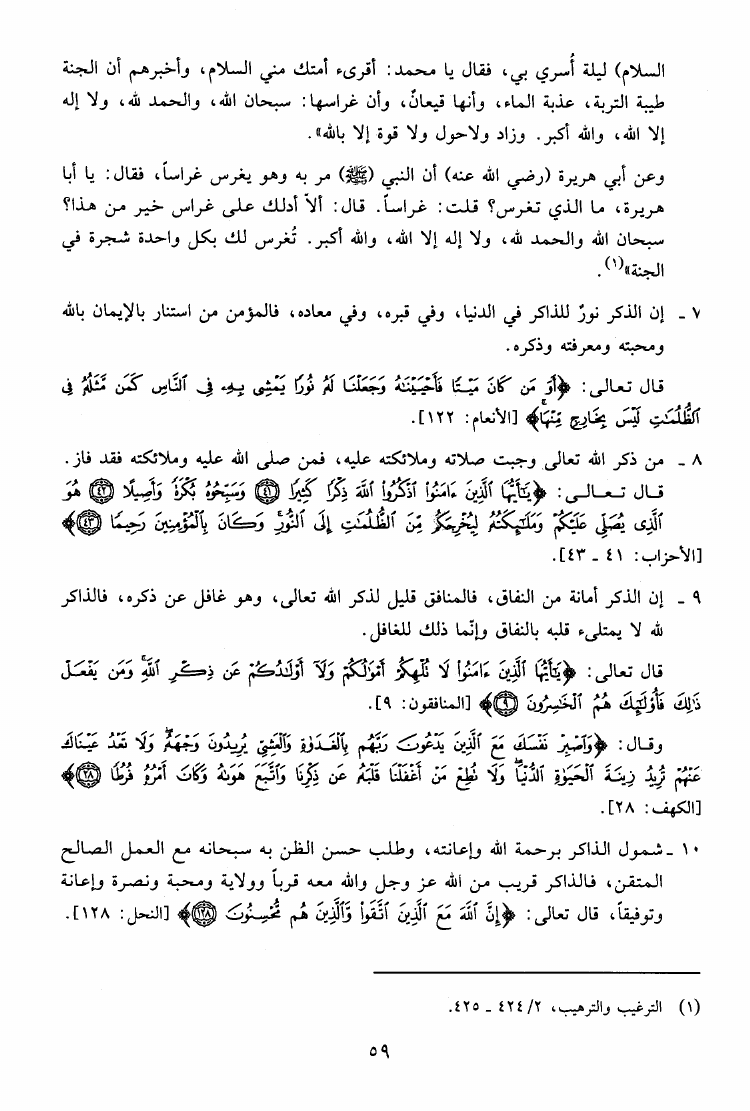 السلام) ليلة أُسري بي، فقال يا محمد: أقرىء أمتك مني السلام، وأخبرهم أن الجنة
طيبة التربة، عذبة الماء، وأنها قيعانٌ، وأن غراسها: سبحان الله، والحمد لله، ولا إله
إلا الله، والله أكبر. وزاد ولاحول ولا قوة إلا بالله».
وعن أبي هريرة (رضي الله عنه) أن النبي (ﷺ) مر به وهو يغرس غراساً، فقال: يا أبا
هريرة، ما الذي تغرس؟ قلت: غراساً. قال: ألاّ أدلك على غراس خير من هذا؟
سبحان الله والحمد لله، ولا إله إلا الله، والله أكبر. تُغرس لك بكل واحدة شجرة في
الجنة»(١).
٧ ـ إن الذكر نورٌ للذاكر في الدنيا، وفي قبره، وفي معاده، فالمؤمن من استنار بالإيمان بالله
ومحبته ومعرفته وذكره.
قال تعالى: ﴿أَوَ مَن كَانَ مَيْتًا فَأَحْيَيْنَٰهُ وَجَعَلْنَا لَهُۥ نُورًا يَمْشِى بِهِۦ فِى ٱلنَّاسِ كَمَن مَّثَلُهُۥ فِى
ٱلظُّلُمَٰتِ لَيْسَ بِخَارِجٍ مِّنْهَا﴾ [الأنعام: ١٢٢].
٨ ـ من ذكر الله تعالى وجبت صلاته وملائكته عليه، فمن صلى الله عليه وملائكته فقد فاز.
قال تعالى: ﴿يَٰٓأَيُّهَا ٱلَّذِينَ ءَامَنُوا۟ ٱذْكُرُوا۟ ٱللَّهَ ذِكْرًا كَثِيرًا ٤١ وَسَبِّحُوهُ بُكْرَةً وَأَصِيلًا ٤٢ هُوَ
ٱلَّذِى يُصَلِّى عَلَيْكُمْ وَمَلَٰٓئِكَتُهُۥ لِيُخْرِجَكُم مِّنَ ٱلظُّلُمَٰتِ إِلَى ٱلنُّورِ ۚ وَكَانَ بِٱلْمُؤْمِنِينَ رَحِيمًا ٤٣﴾
[الأحزاب: ٤١ ـ ٤٣].
٩ ـ إن الذكر أمانة من النفاق، فالمنافق قليل لذكر الله تعالى، وهو غافل عن ذكره، فالذاكر
لله لا يمتلىء قلبه بالنفاق وإنّما ذلك للغافل.
قال تعالى: ﴿يَٰٓأَيُّهَا ٱلَّذِينَ ءَامَنُوا۟ لَا تُلْهِكُمْ أَمْوَٰلُكُمْ وَلَآ أَوْلَٰدُكُمْ عَن ذِكْرِ ٱللَّهِ ۚ وَمَن يَفْعَلْ
ذَٰلِكَ فَأُو۟لَٰٓئِكَ هُمُ ٱلْخَٰسِرُونَ ٩﴾ [المنافقون: ٩].
وقال: ﴿وَٱصْبِرْ نَفْسَكَ مَعَ ٱلَّذِينَ يَدْعُونَ رَبَّهُم بِٱلْغَدَوٰةِ وَٱلْعَشِىِّ يُرِيدُونَ وَجْهَهُۥ ۖ وَلَا تَعْدُ عَيْنَاكَ
عَنْهُمْ تُرِيدُ زِينَةَ ٱلْحَيَوٰةِ ٱلدُّنْيَا ۖ وَلَا تُطِعْ مَنْ أَغْفَلْنَا قَلْبَهُۥ عَن ذِكْرِنَا وَٱتَّبَعَ هَوَىٰهُ وَكَانَ أَمْرُهُۥ فُرُطًا ٢٨﴾
[الكهف: ٢٨].
١٠ ـ شمول الذاكر برحمة الله وإعانته، وطلب حسن الظن به سبحانه مع العمل الصالح
المتقن، فالذاكر قريب من الله عز وجل والله معه قرباً وولاية ومحبة ونصرة وإعانة
وتوفيقاً، قال تعالى: ﴿إِنَّ ٱللَّهَ مَعَ ٱلَّذِينَ ٱتَّقَوا۟ وَّٱلَّذِينَ هُم مُّحْسِنُونَ ١٢٨﴾ [النحل: ١٢٨].
(١) الترغيب والترهيب، ٤٢٤/٢ ـ ٤٢٥.
٥٩